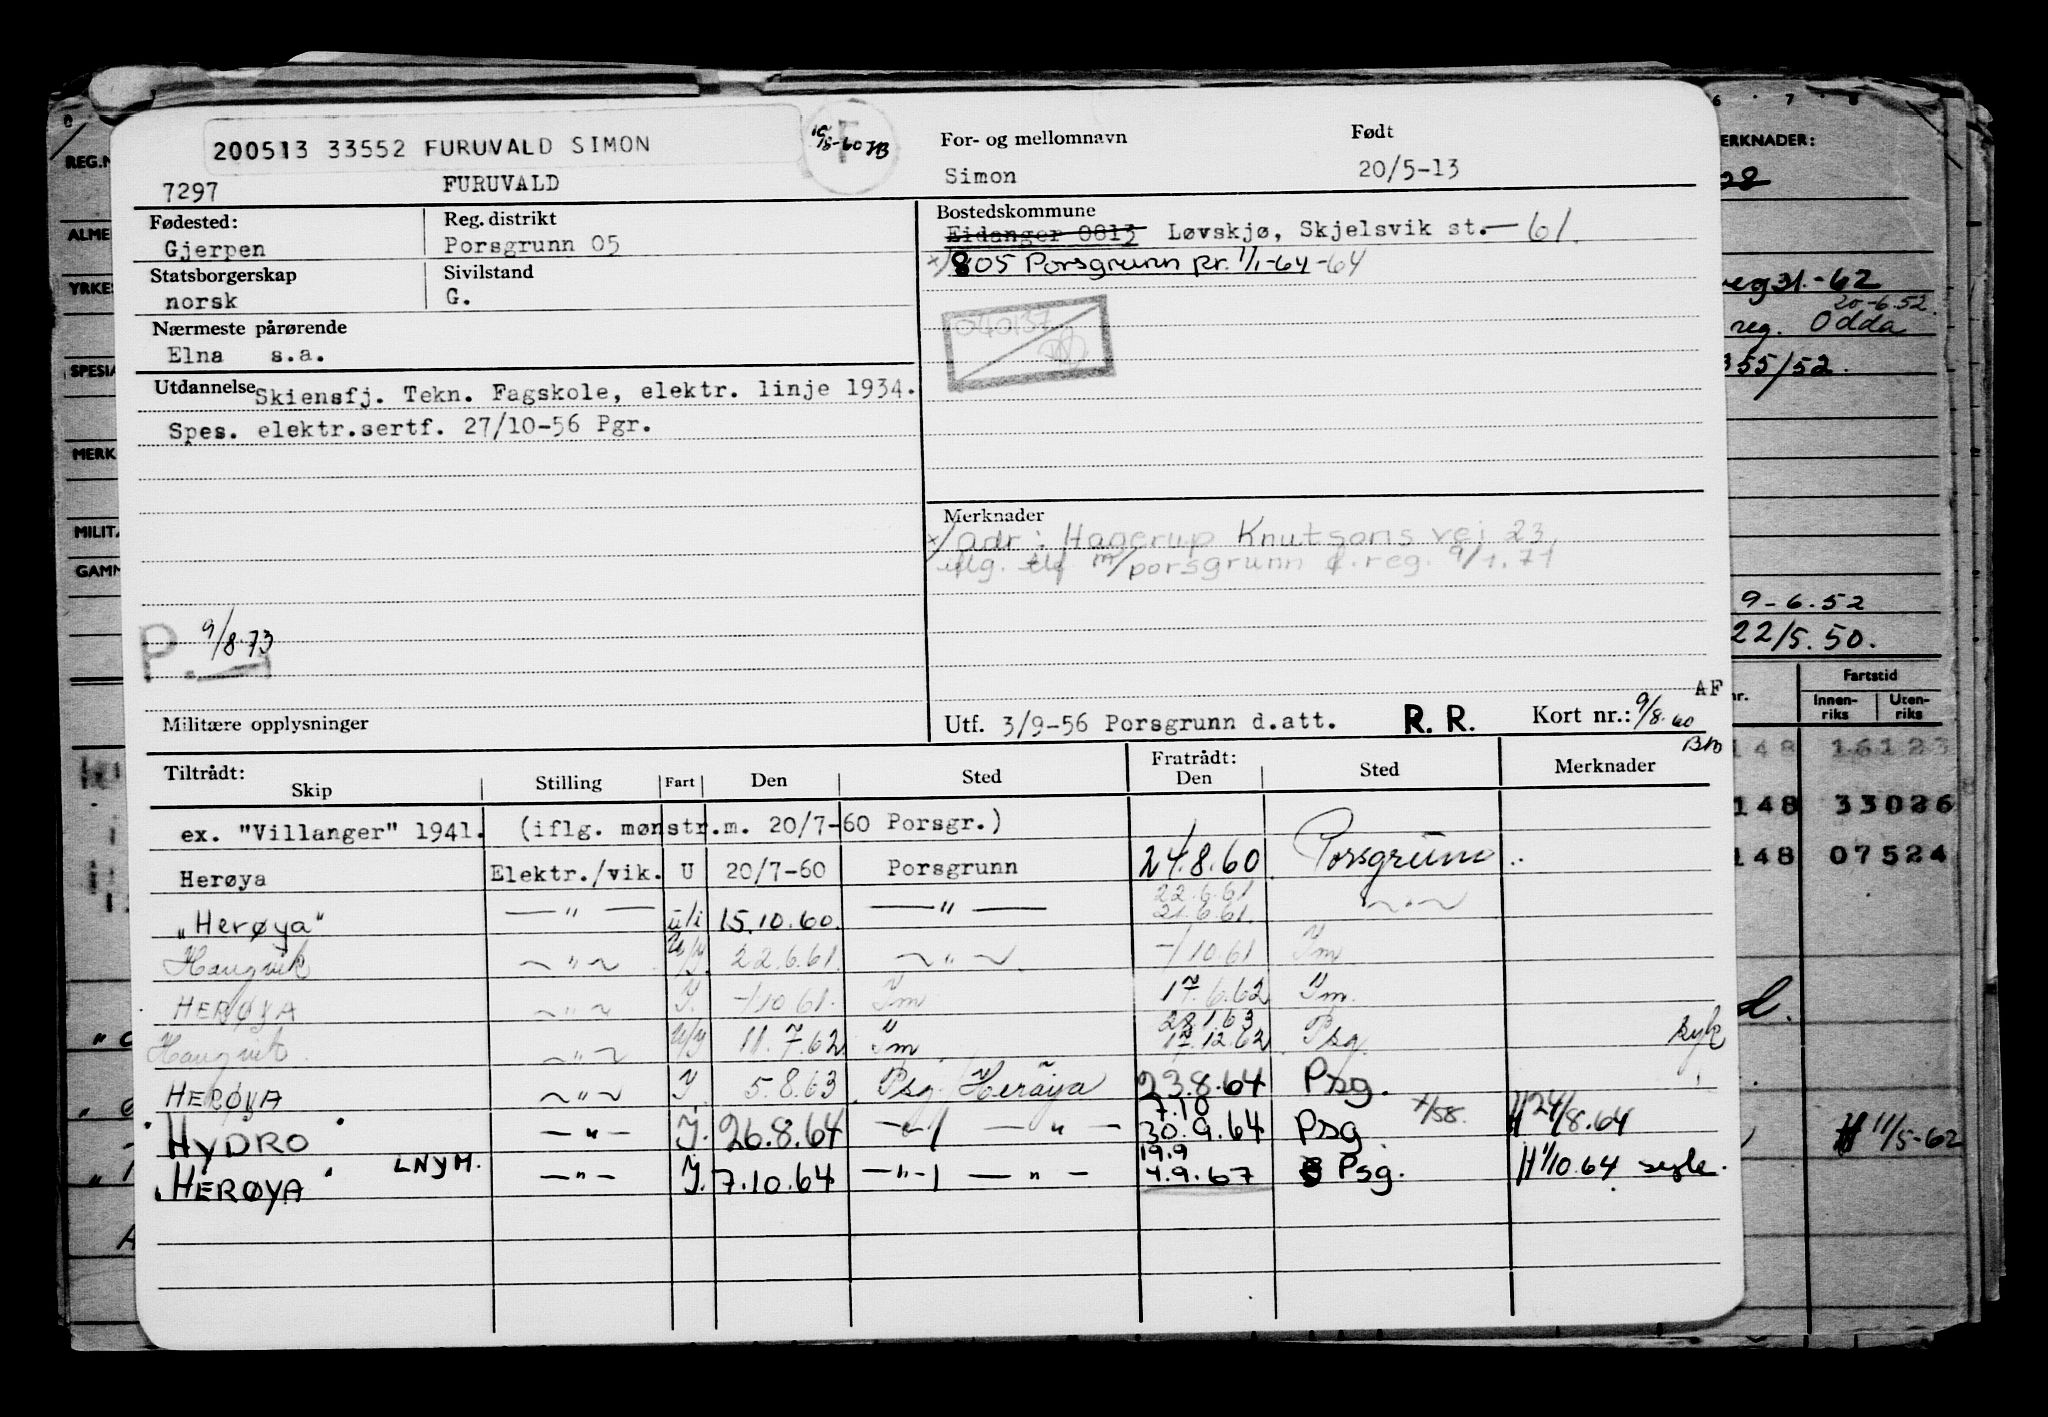 200513 33552 FURUVALD SIMON
7297 FURUVALD
For- og mellomnavn Født
Simon 20/5-13
Fødested: Reg. distrikt
Gjerpen Porsgrunn 05
Statsborgerskap Sivilstand
norsk G.
Nærmeste pårørende
Elna s.a.
Utdannelse Skiensfj. Tekn. Fagskole, elektr. linje 1934.
Spes. elektr.sertf. 27/10-56 Pgr.
P. 9/8.73
Militære opplysninger
Bostedskommune
Eidanger 0813 Løvskjø, Skjelsvik st. - 61.
x/ 805 Porsgrunn pr. 1/1-64 -64
040137
Merknader
x/ adr: Hagerup Knutsons vei 23
iflg. tlf m/porsgrunn f.reg. 9/1.71
AF
Utf. 3/9-56 Porsgrunn d.att. R. R. Kort nr.: 9/8.60
Tiltrådt: Skip Stilling Fart Den Sted Fratrådt: Den Sted Merknader
ex. "Villanger" 1941. (iflg. mønstr.m. 20/7-60 Porsgr.)
Herøya Elektr./vik. U 20/7-60 Porsgrunn 24.8.60. Porsgrunn
"Herøya" — " — u/i 15.10.60. — " — 22.6.61 21.6.61. ~ " ~
Haugvik ~ " ~ U/I. 22.6.61. ~ " ~ -/10.61 Im
HERØYA ~ " ~ I. -/10.61. Im 17.6.62 Im.
Haugvik. ~ " ~ U/I 11.7.62 Im. 28.1.63 17.12.62 Psg. syk
HERØYA ~ " ~ I 5.8.63 Psg. Herøya 23.8.64 Psg.
"HYDRO" — " — I. 26.8.64 — " — — " — 7.10 30.9.64 Psg. x/58. H 24/8.64
"HERØYA" LNYM. — " — I. 7.10.64 — " — — " — 19.9 4.9.67 Psg. H 1/10.64 syk.
REG.N
ALME
YRKE
SPESIA
MERK
MILITÆ
GAMM
6 7 8
ERKNADER:
28
reg 31.-62
20-6.52.
reg. Odda
355/52.
9-6.52
22/5.50.
nr. Fartstid
Innenriks Utenriks
148 16123
148 33026
148 07524
H 11/5-62